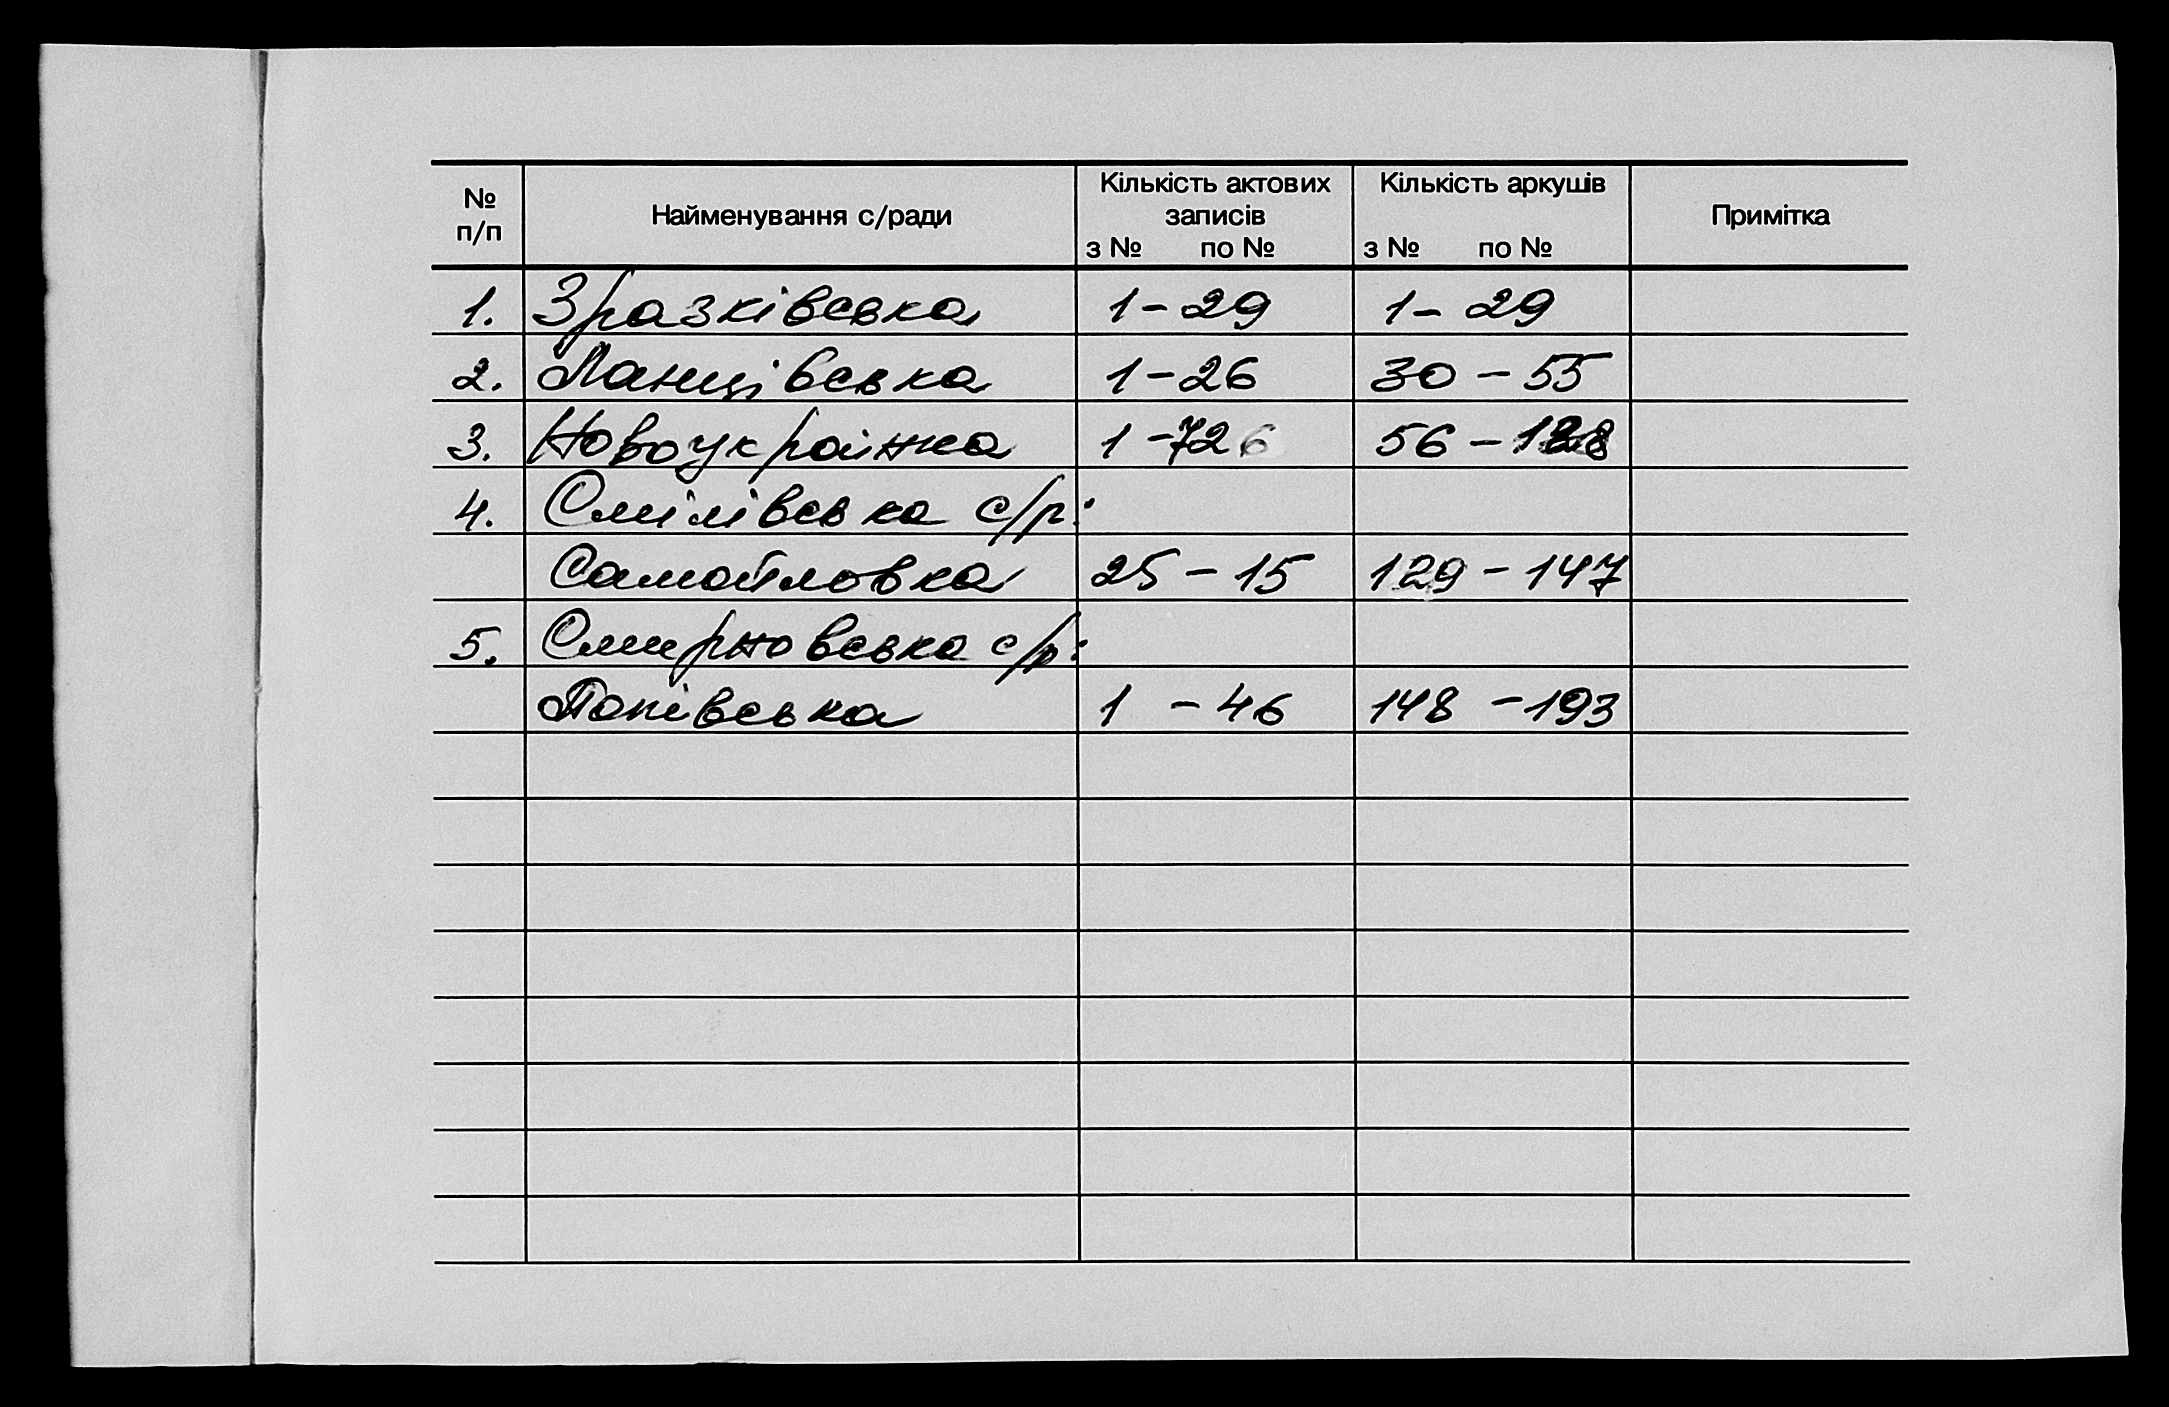 № п/п Найменування с/ради Кількість актових записів з № по № Кількість аркушів з № по № Примітка
1. Зразківська 1 - 29 1 - 29
2. Ланцівська 1 - 26 30 - 55
3. Новоукраїнка 1 - 72 56 - 128
4. Смілівська с/р:
Самойловка 25 - 15 129 - 147
5. Смирновська с/р:
Попівська 1 - 46 148 - 193